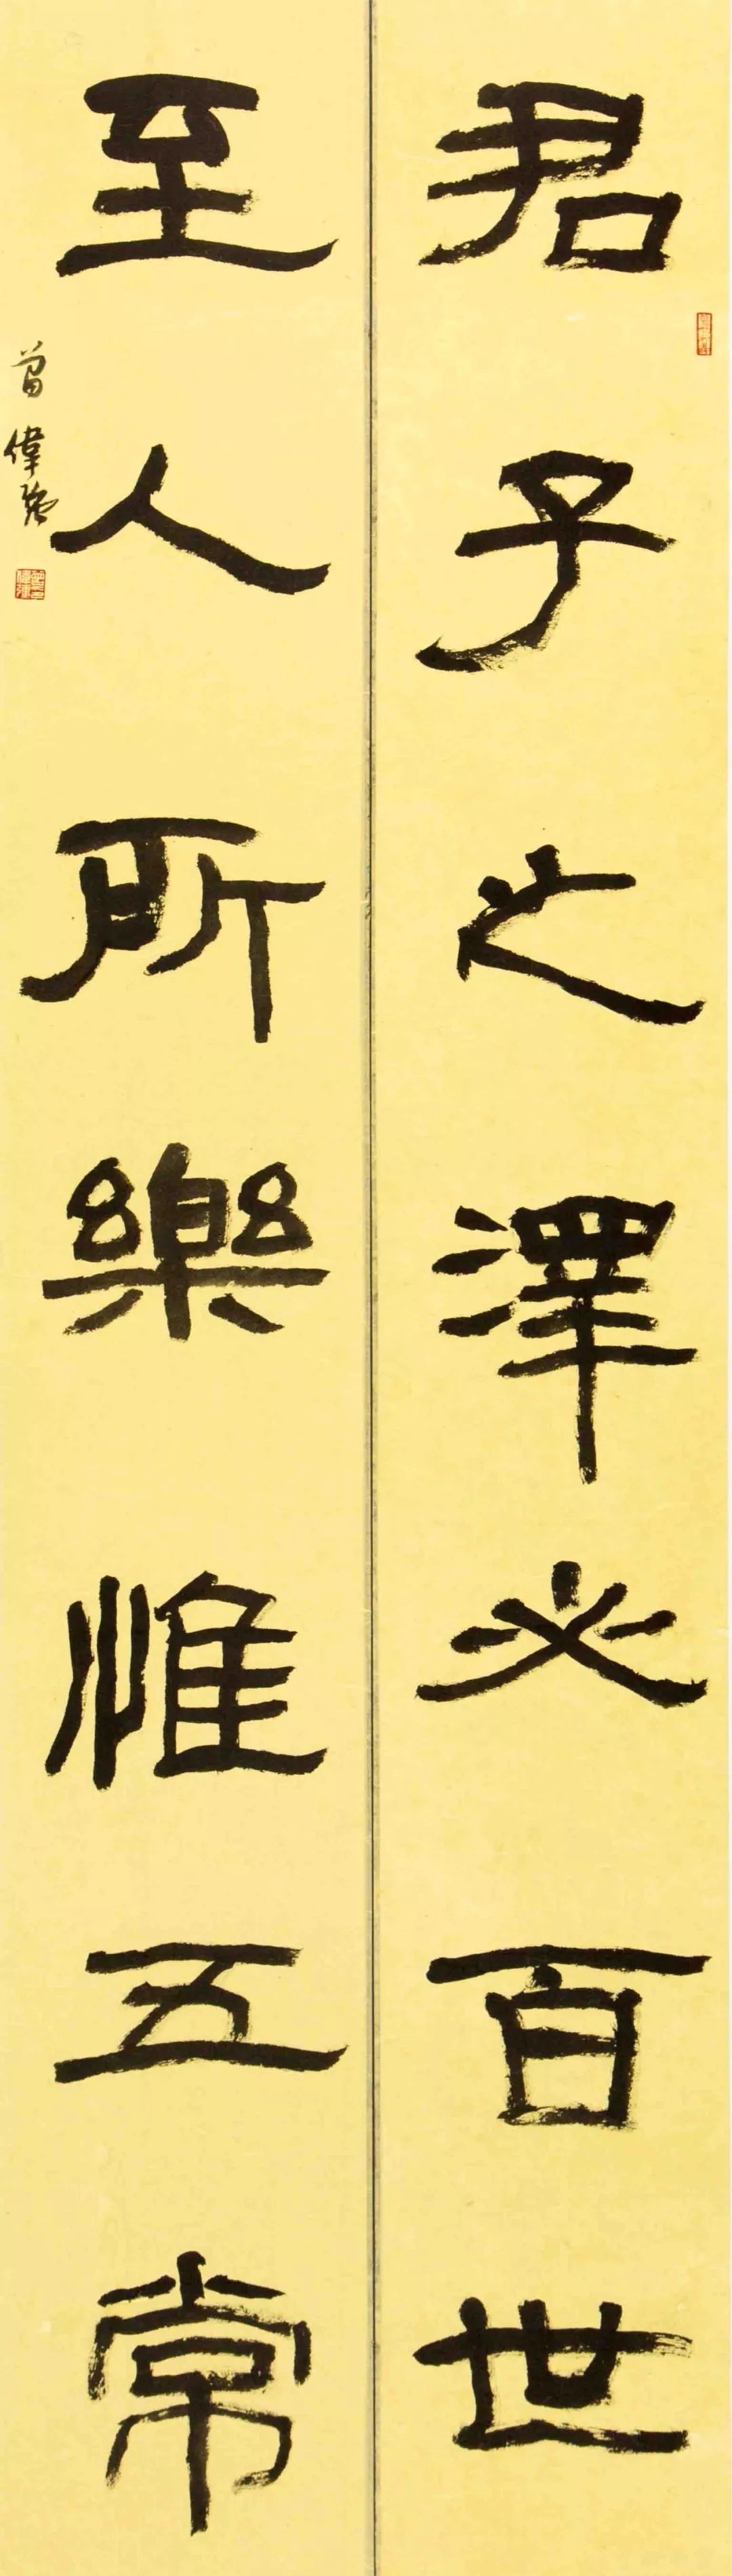 君子之澤必百世
至人所樂惟五常
曾偉強